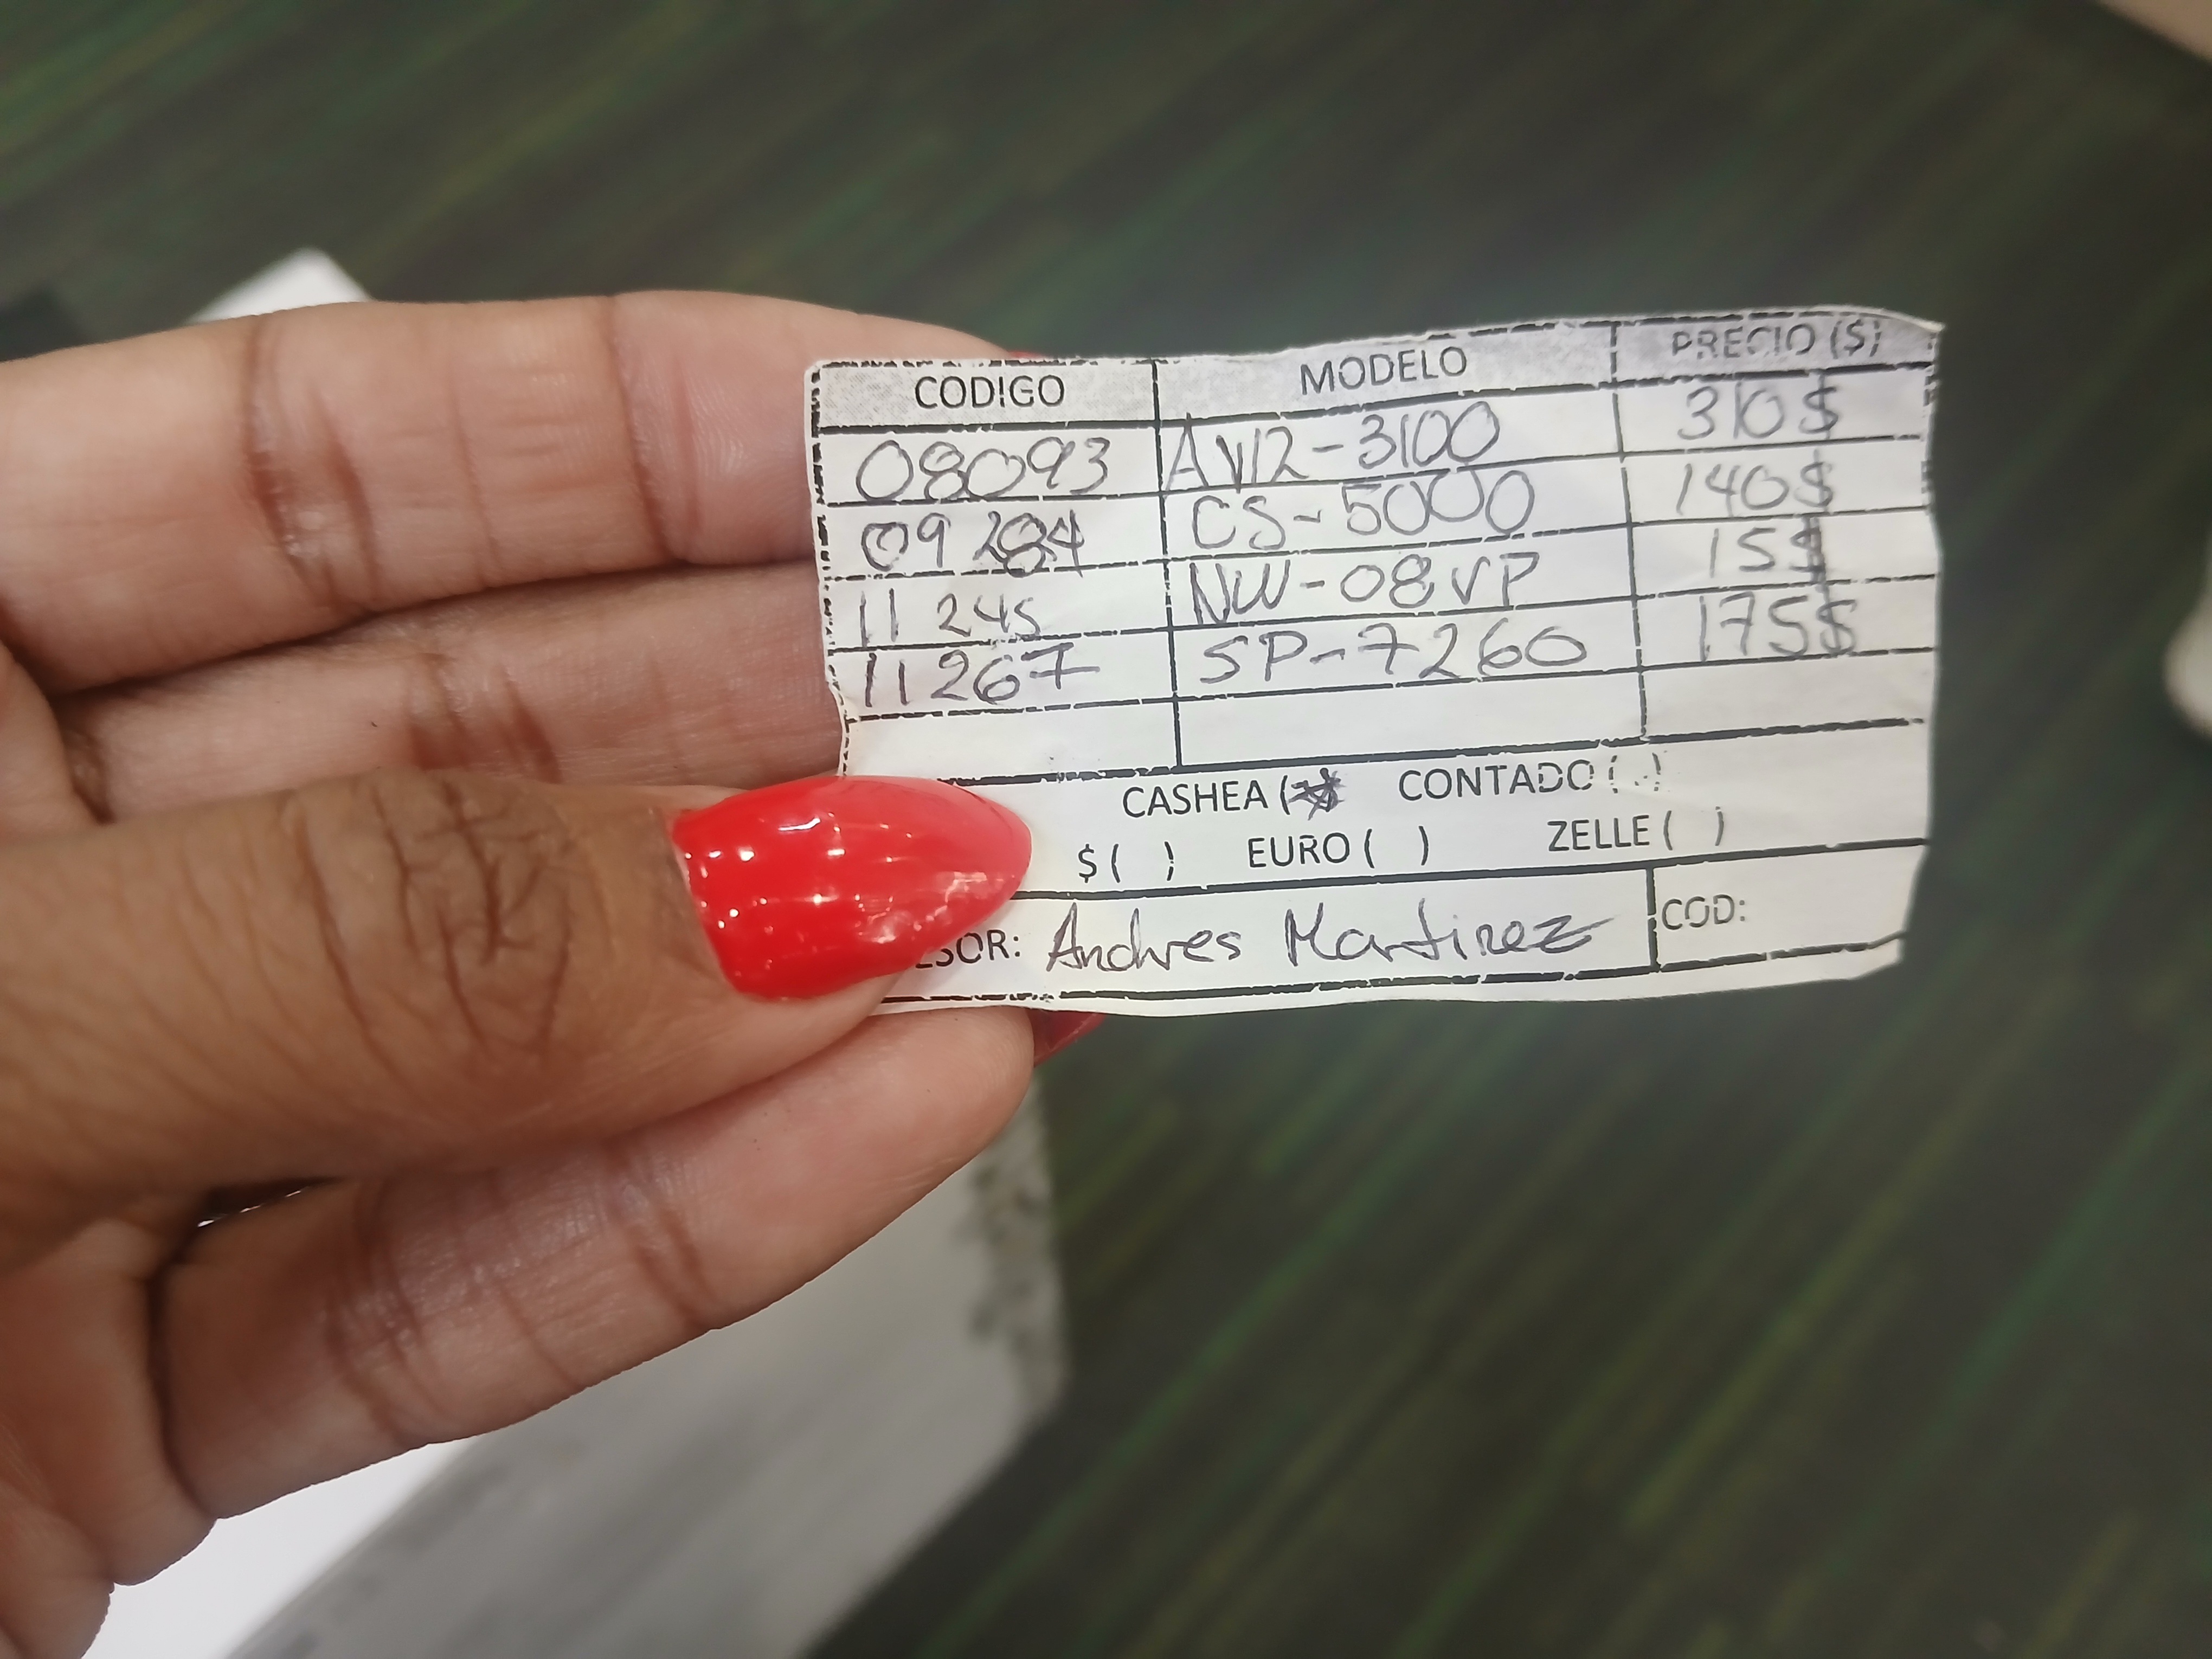 CODIGO MODELO PRECIO ($)
08093 AV12-3100 310$
09284 CS-5000 140$
11245 NW-08VP 15$
11267 SP-7260 175$
CASHEA ( CONTADO ( )
$ ( ) EURO ( ) ZELLE ( )
ESOR: Andres Martinez COD: